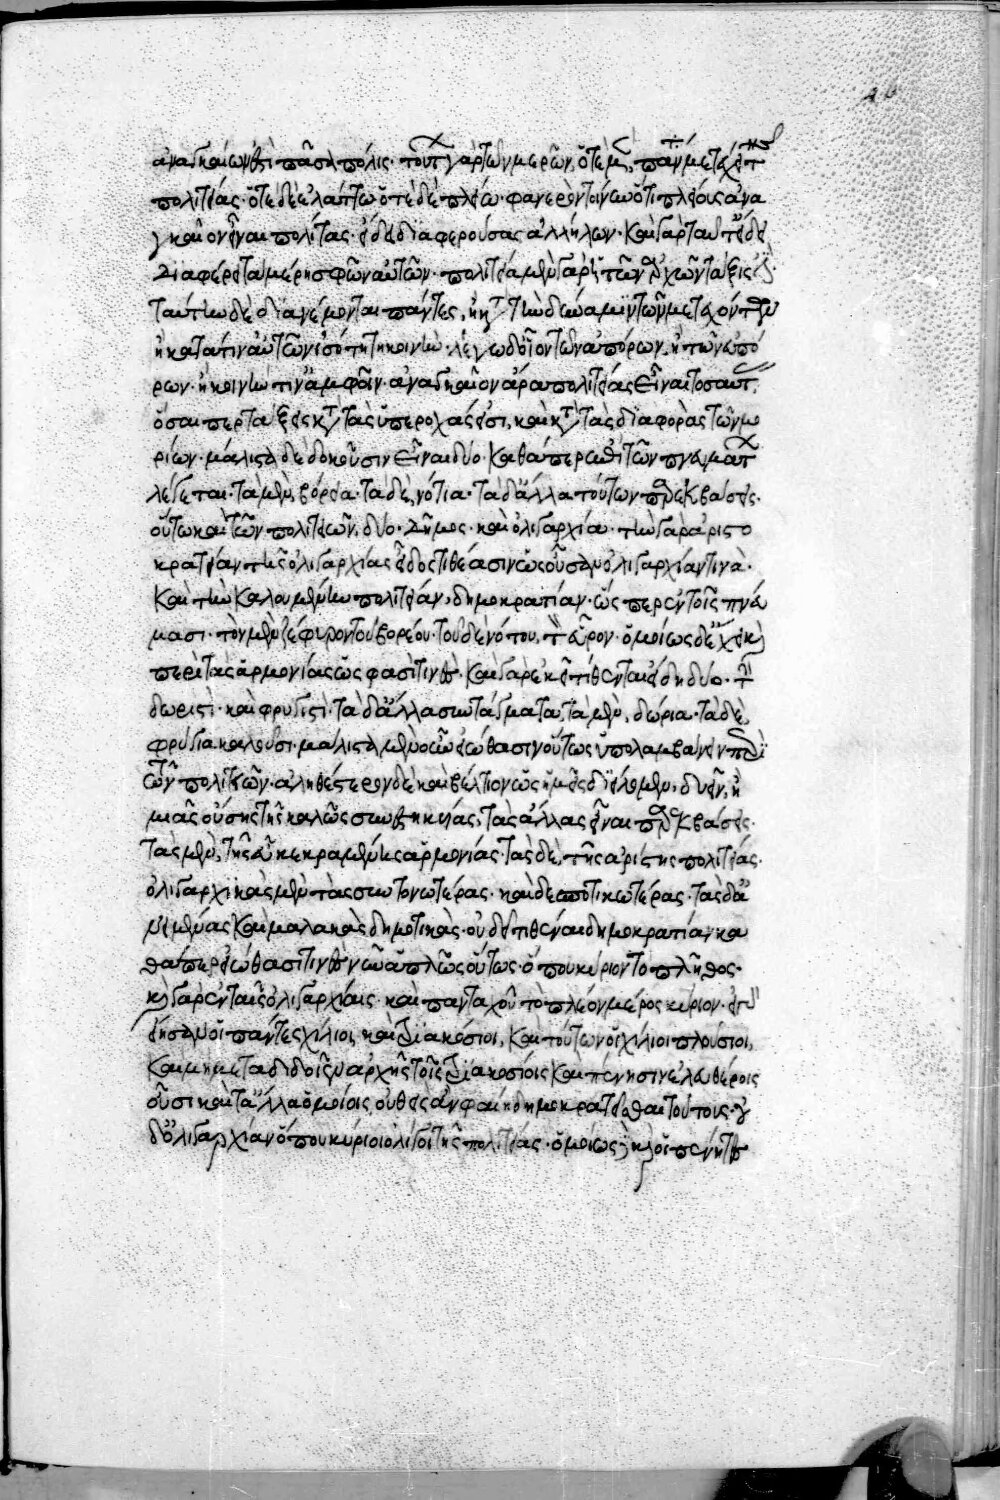 ἀναγκαίων ἐστὶ πᾶσα πόλις· τούτων γὰρ τῶν μερῶν, ὁτὲ μὲν, πάντα μετέχει τῆς
πολιτείας· ὁτὲ δὲ ἐλάττω· ὁτὲ δὲ πλείω· φανερὸν τοίνυν ὅτι πλείους ἀνα
γκαῖον εἶναι πολιτείας· εἴδει διαφερούσας ἀλλήλων· καὶ γὰρ ταῦτ' εἴδει
διαφέρει τὰ μέρη σφῶν αὐτῶν· πολιτεία μὲν γὰρ ἡ τῶν ἀρχῶν τάξις ἐστί·
ταύτην δὲ διανέμονται πάντες, ἢ κατὰ τὴν δύναμιν τῶν μετεχόντων
ἢ κατά τιν' αὐτῶν ἰσότητα κοινήν· λέγω δ' οἷον τῶν ἀπόρων, ἢ τῶν εὐπό
ρων· ἢ κοινήν τιν' ἀμφοῖν· ἀναγκαῖον ἄρα πολιτείας εἶναι τοσαύτας,
ὅσαι περ τάξεις κατὰ τὰς ὑπεροχάς εἰσι, καὶ κατὰ τὰς διαφορὰς τῶν μο
ρίων· μάλιστα δὲ δοκοῦσιν εἶναι δύο· καθάπερ ἐπὶ τῶν πνευμάτων
λέγεται· τὰ μὲν, βόρεια· τὰ δὲ, νότια· τὰ δ' ἄλλα τούτων παρεκβάσεις·
οὕτω καὶ τῶν πολιτειῶν, δύο· δῆμος· καὶ ὀλιγαρχία· τὴν γὰρ ἀριστο
κρατίαν τῆς ὀλιγαρχίας εἶδος τιθέασιν ὡς οὖσαν ὀλιγαρχίαν τινὰ·
καὶ τὴν καλουμένην πολιτείαν, δημοκρατίαν· ὥσπερ ἐν τοῖς πνεύ
μασι· τὸν μὲν ζέφυρον τοῦ βορέου· τοῦ δὲ νότου, τὸν εὖρον· ὁμοίως δ' ἔχει καὶ
περὶ τὰς ἁρμονίας ὥς φασί τινες· καὶ γὰρ ἐκεῖ τίθενται εἴδη δύο· τὴν
δωριστὶ· καὶ φρυγιστὶ· τὰ δ' ἄλλα συντάγματα, τὰ μὲν, δώρια· τὰ δὲ,
φρύγια καλοῦσι· μάλιστα μὲν οὖν εἰώθασιν οὕτως ὑπολαμβάνειν περὶ
τῶν πολιτειῶν· ἀληθέστερον δὲ καὶ βέλτιον ὡς ἡμεῖς διείλομεν, δυεῖν, ἢ
μιᾶς οὔσης τῆς καλῶς συνεστηκυίας, τὰς ἄλλας εἶναι παρεκβάσεις·
τὰς μὲν, τῆς εὖ κεκραμένης ἁρμονίας· τὰς δὲ, τῆς ἀρίστης πολιτείας·
ὀλιγαρχικὰς μὲν τὰς συντονωτέρας· καὶ δεσποτικωτέρας· τὰς δ' ἀ
νειμένας καὶ μαλακὰς δημοτικὰς· οὐ δεῖ τιθέναι δημοκρατίαν κα
θάπερ εἰώθασί τινες νῦν ἁπλῶς οὕτως· ὅπου κύριον τὸ πλῆθος·
καὶ γὰρ ἐν ταῖς ὀλιγαρχίαις· καὶ πανταχοῦ τὸ πλέον μέρος κύριον·
εἴησαν οἱ πάντες χίλιοι καὶ τριακόσιοι, καὶ τούτων οἱ χίλιοι πλούσιοι,
καὶ μὴ μεταδιδοῖεν ἀρχῆς τοῖς τριακοσίοις καὶ πένησιν ἐλευθέροις
οὖσι καὶ τἆλλα ὁμοίοις, οὐθεὶς ἂν φαίη δημοκρατεῖσθαι τούτους·
δ' ὀλιγαρχίαν ὅπου κύριοι ὀλίγοι τῆς πολιτείας· ὁμοίως καὶ εἰ πένητες